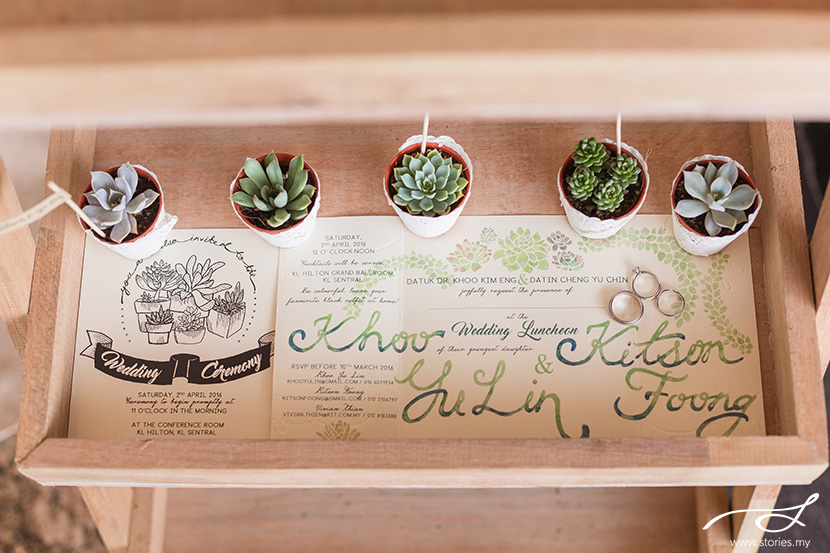 you are also invited to the
Wedding Ceremony
SATURDAY,
2ND APRIL 2016
Ceremony to begin promptly at
11 O'CLOCK IN THE MORNING
AT THE CONFERENCE ROOM
KL HILTON, KL SENTRAL
SATURDAY,
2ND APRIL 2016
12 O'CLOCK NOON
Cocktails will be served
KL HILTON GRAND BALLROOM
KL SENTRAL
Be colourful, leave your
favourite black outfit at home!
RSVP BEFORE 10TH MARCH 2016
Khoo Yu Lin
KHOOYULIN@GMAIL.COM / 016 6079134
Kitson Foong
KITSONFOONG@GMAIL.COM / 012 2106797
Vivian Thien
VIVIAN.THIEN@KIT.COM.MY / 012
DATUK DR. KHOO KIM ENG & DATIN CHENG YU CHIN
joyfully request the presence of
at the
Wedding Luncheon
of their youngest daughter
Khoo
Yu Lin
&
Kitson
Foong
www.stories.my